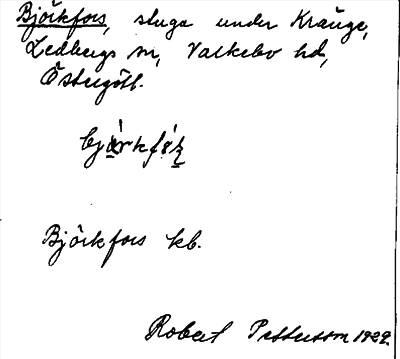 Björkfors, stuga under Kränge,
Ledbergs sn, Valkebo hd,
Östergötl.
Björkfors kb.
Robert Pettersson 1929.